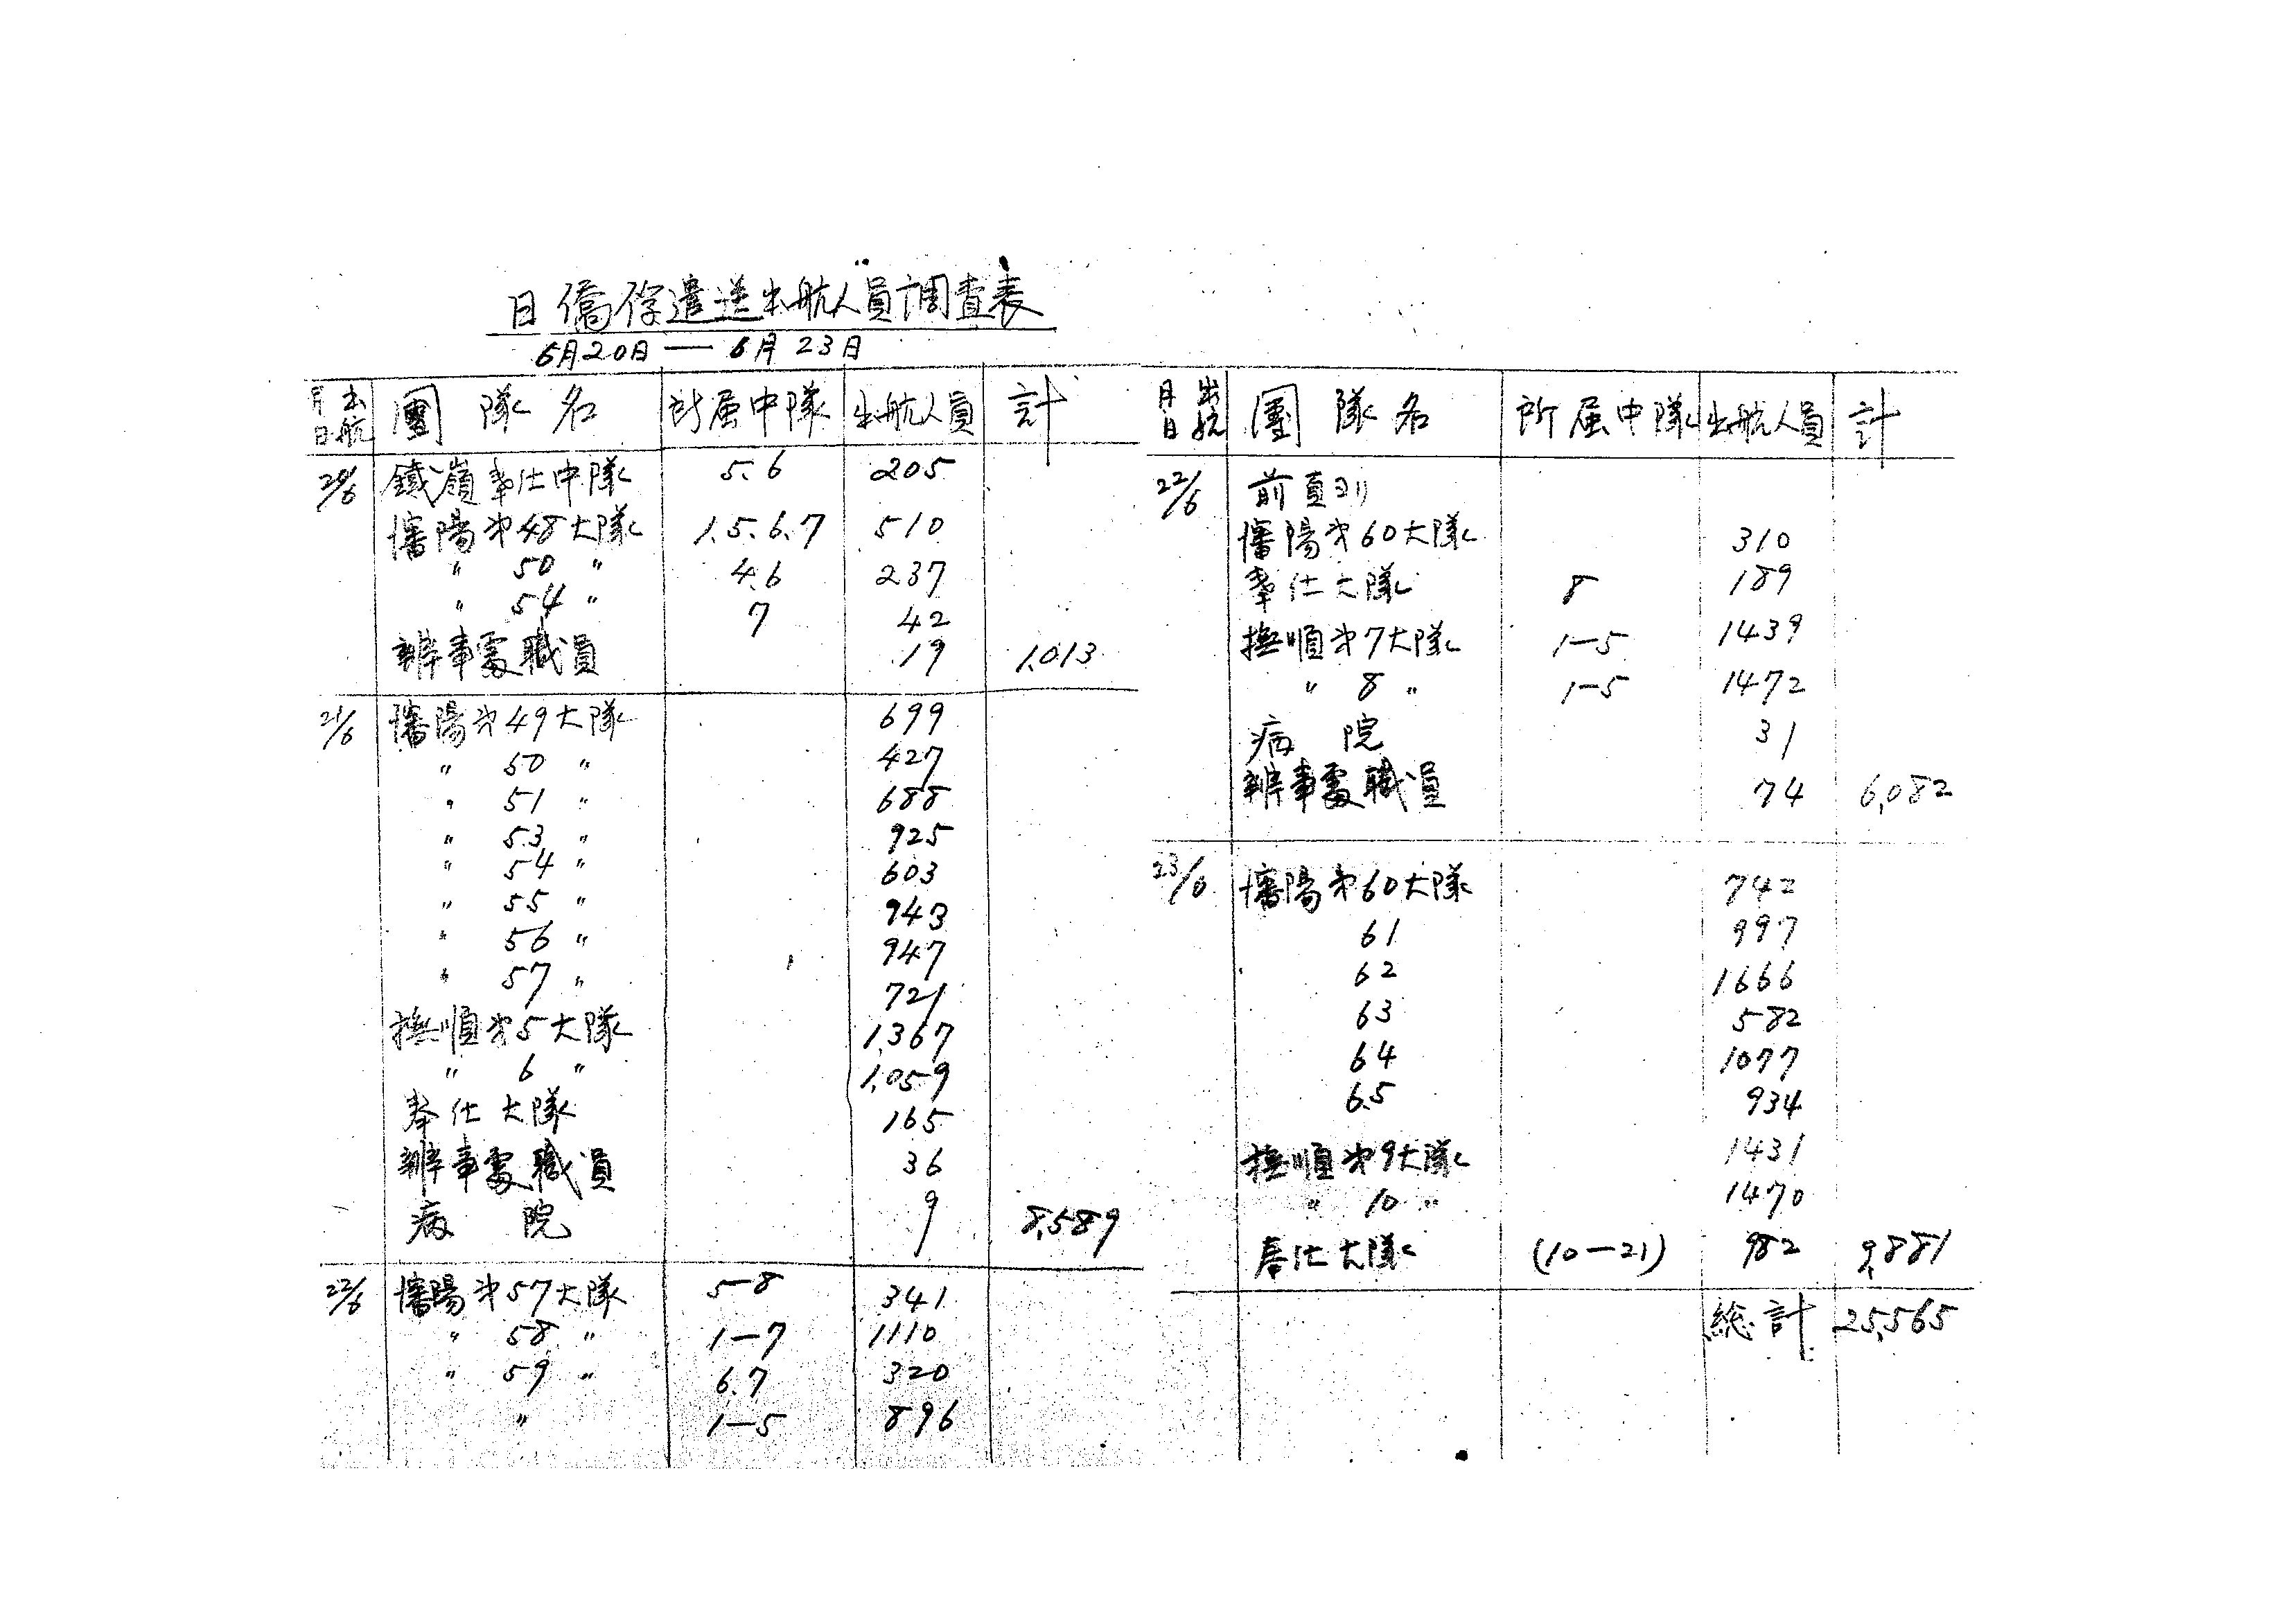 日僑俘遣送出航人員調査表
6月20日 — 6月23日
出航月日 團隊名 所属中隊 出航人員 計
20/6 鐵嶺奉仕中隊 5.6 205
瀋陽才48大隊 1.5.6.7 510
〃 50 〃 4.6 237
〃 54 〃 7 42
辨事處職員 19 1,013
21/6 瀋陽才49大隊 699
〃 50 〃 427
〃 51 〃 688
〃 53 〃 925
〃 54 〃 603
〃 55 〃 943
〃 56 〃 947
〃 57 〃 721
撫順才5大隊 1,367
〃 6 〃 1,059
奉仕大隊 165
辨事處職員 36
病院 9 8,589
22/6 瀋陽才57大隊 5-8 341
〃 58 〃 1-7 1110
〃 59 〃 6.7 320
〃 1-5 896
出航月日 團隊名 所属中隊 出航人員 計
22/6 前頁ヨリ
瀋陽才60大隊 310
奉仕大隊 8 189
撫順才7大隊 1-5 1439
〃 8 〃 1-5 1472
病院 31
辨事處職員 74 6,082
23/6 瀋陽才60大隊 742
61 997
62 1666
63 582
64 1077
65 934
撫順才9大隊 1431
〃 10 〃 1470
奉仕大隊 (10-21) 982 9,881
総計 25,565